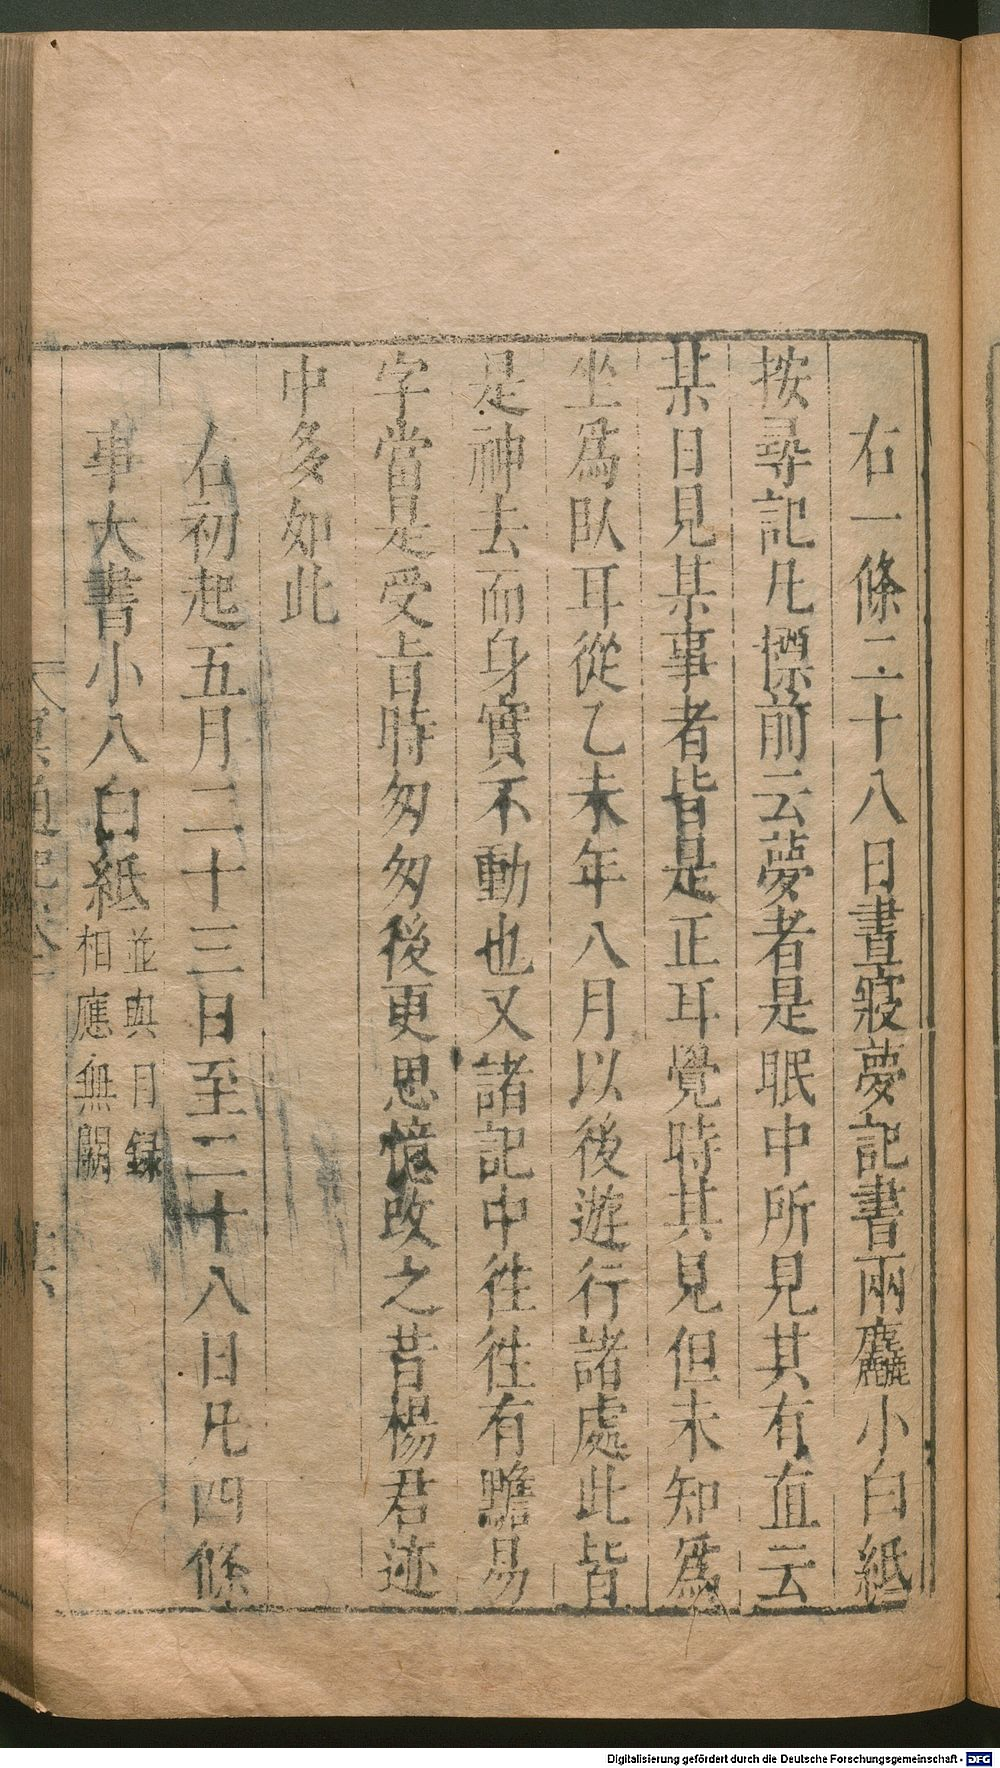 右一條二十八日晝寢夢記書兩麤小白紙
按尋記凡㯹前云夢者是眠中所見其有直云
某日見某事者皆是正耳覺時其見但未知爲
坐爲臥耳從乙未年八月以後遊行諸處此皆
是神去而身實不動也又諸記中徃徃有黵易
字當是受旨時匆匆後更思憶改之昔楊君迹
中多如此
右初起五月二十三日至二十八日凡四條
事大書小八白紙
並與目録
相應無闕
Digitalisierung gefördert durch die Deutsche Forschungsgemeinschaft - DFG